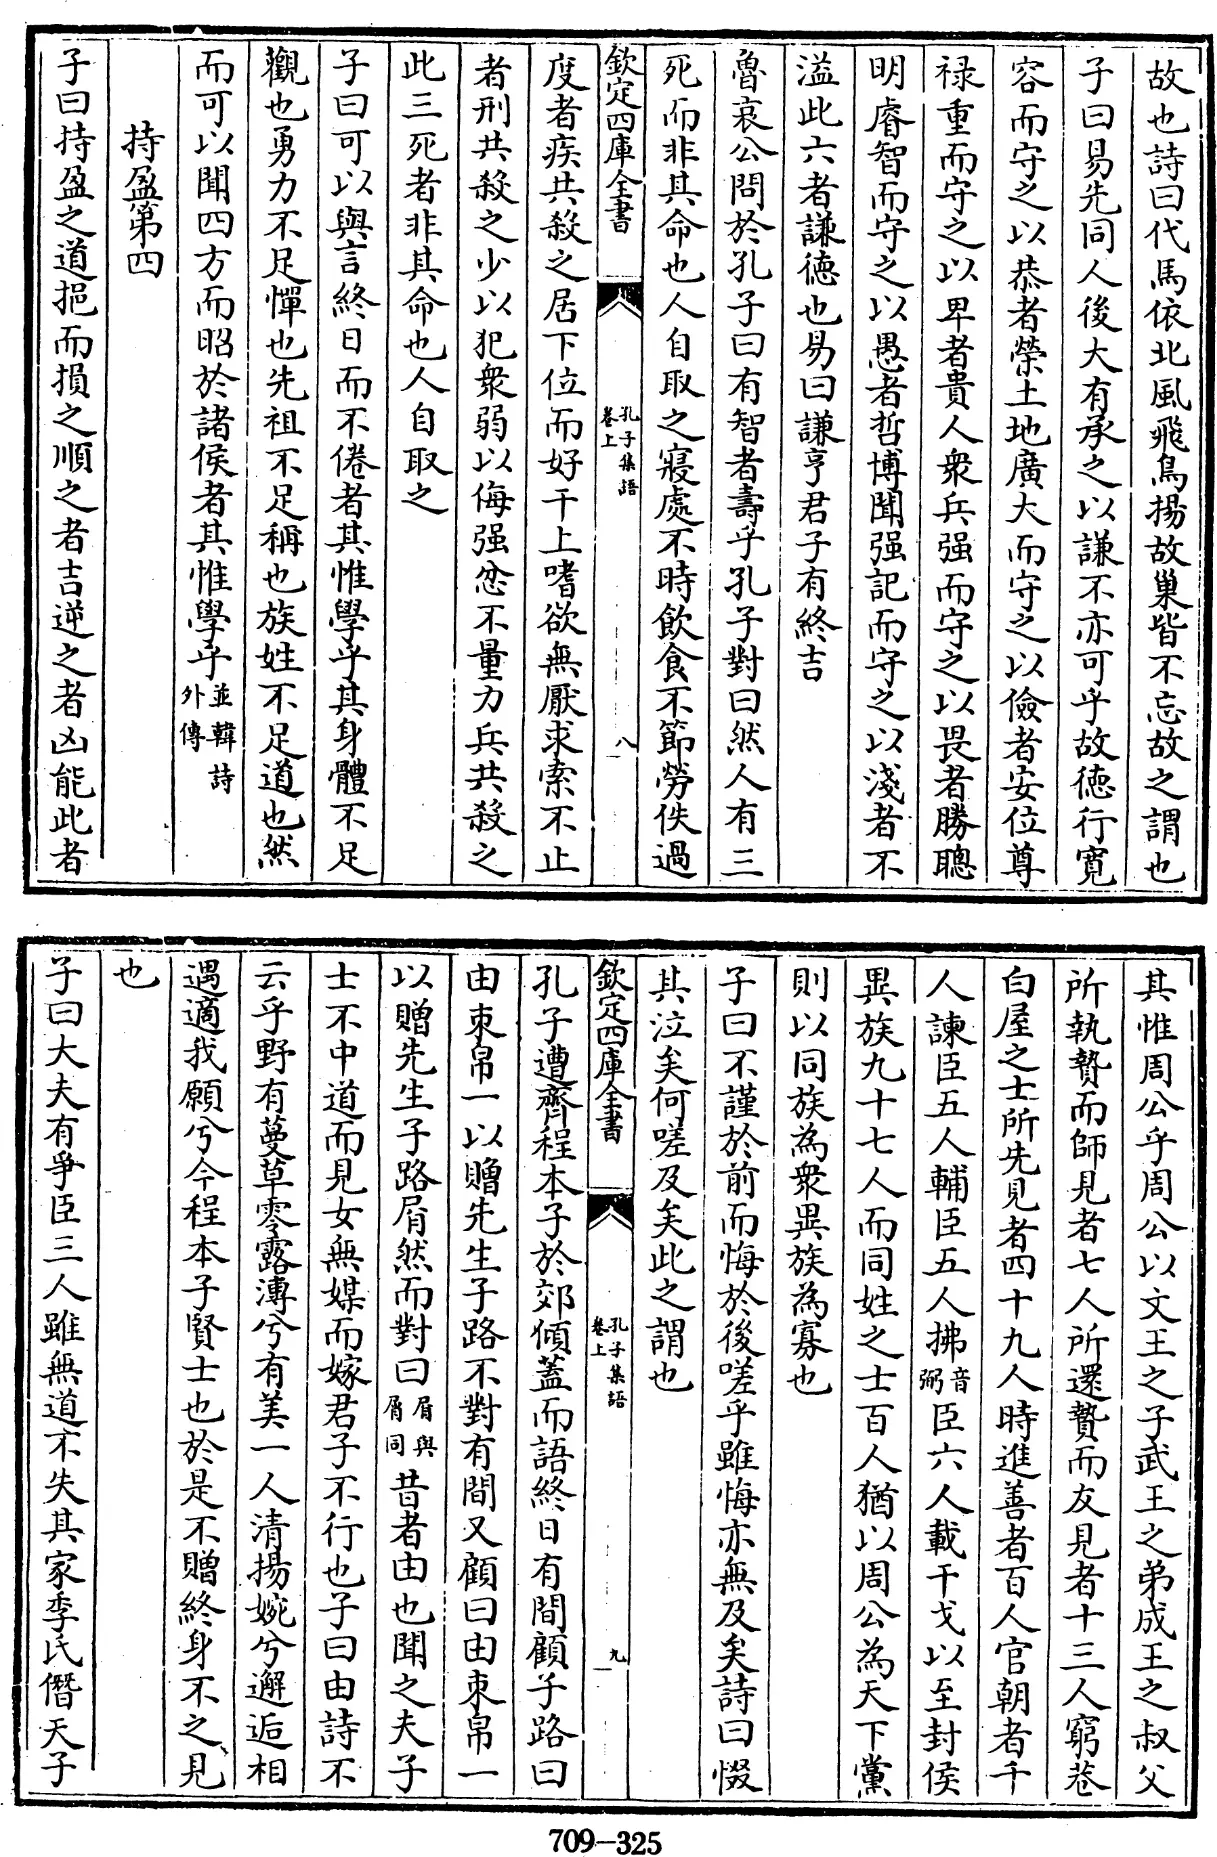 故也詩曰代馬依北風飛鳥揚故巢皆不忘故之謂也
子曰易先同人後大有承之以謙不亦可乎故德行寛
容而守之以恭者榮土地廣大而守之以儉者安位尊
禄重而守之以卑者貴人衆兵强而守之以畏者勝聰
明睿智而守之以愚者哲博聞强記而守之以淺者不
溢此六者謙德也易曰謙亨君子有終吉
魯哀公問於孔子曰有智者壽乎孔子對曰然人有三
死而非其命也人自取之寢處不時飲食不節勞佚過
欽定四庫全書
孔子集語
卷上
八
度者疾共殺之居下位而好干上嗜欲無厭求索不止
者刑共殺之少以犯衆弱以侮强忿不量力兵共殺之
此三死者非其命也人自取之
子曰可以與言終日而不倦者其惟學乎其身體不足
觀也勇力不足憚也先祖不足稱也族姓不足道也然
而可以聞四方而昭於諸侯者其惟學乎並韓詩
外傳
持盈第四
子曰持盈之道挹而損之順之者吉逆之者凶能此者
其惟周公乎周公以文王之子武王之弟成王之叔父
所執贄而師見者七人所還贄而友見者十三人窮巷
白屋之士所先見者四十九人時進善者百人官朝者千
人諫臣五人輔臣五人拂音弼臣六人載干戈以至封侯
異族九十七人而同姓之士百人猶以周公為天下黨
則以同族為衆異族為寡也
子曰不謹於前而悔於後嗟乎雖悔亦無及矣詩曰惙
其泣矣何嗟及矣此之謂也
欽定四庫全書
孔子集語
卷上
九
孔子遭齊程本子於郊傾蓋而語終日有間顧子路曰
由束帛一以贈先生子路不對有間又顧曰由束帛一
以贈先生子路屑然而對曰屑與屑同昔者由也聞之夫子
士不中道而見女無媒而嫁君子不行也子曰由詩不
云乎野有蔓草零露漙兮有美一人清揚婉兮邂逅相
遇適我願兮今程本子賢士也於是不贈終身不之見
也
子曰大夫有爭臣三人雖無道不失其家季氏僭天子
709-325